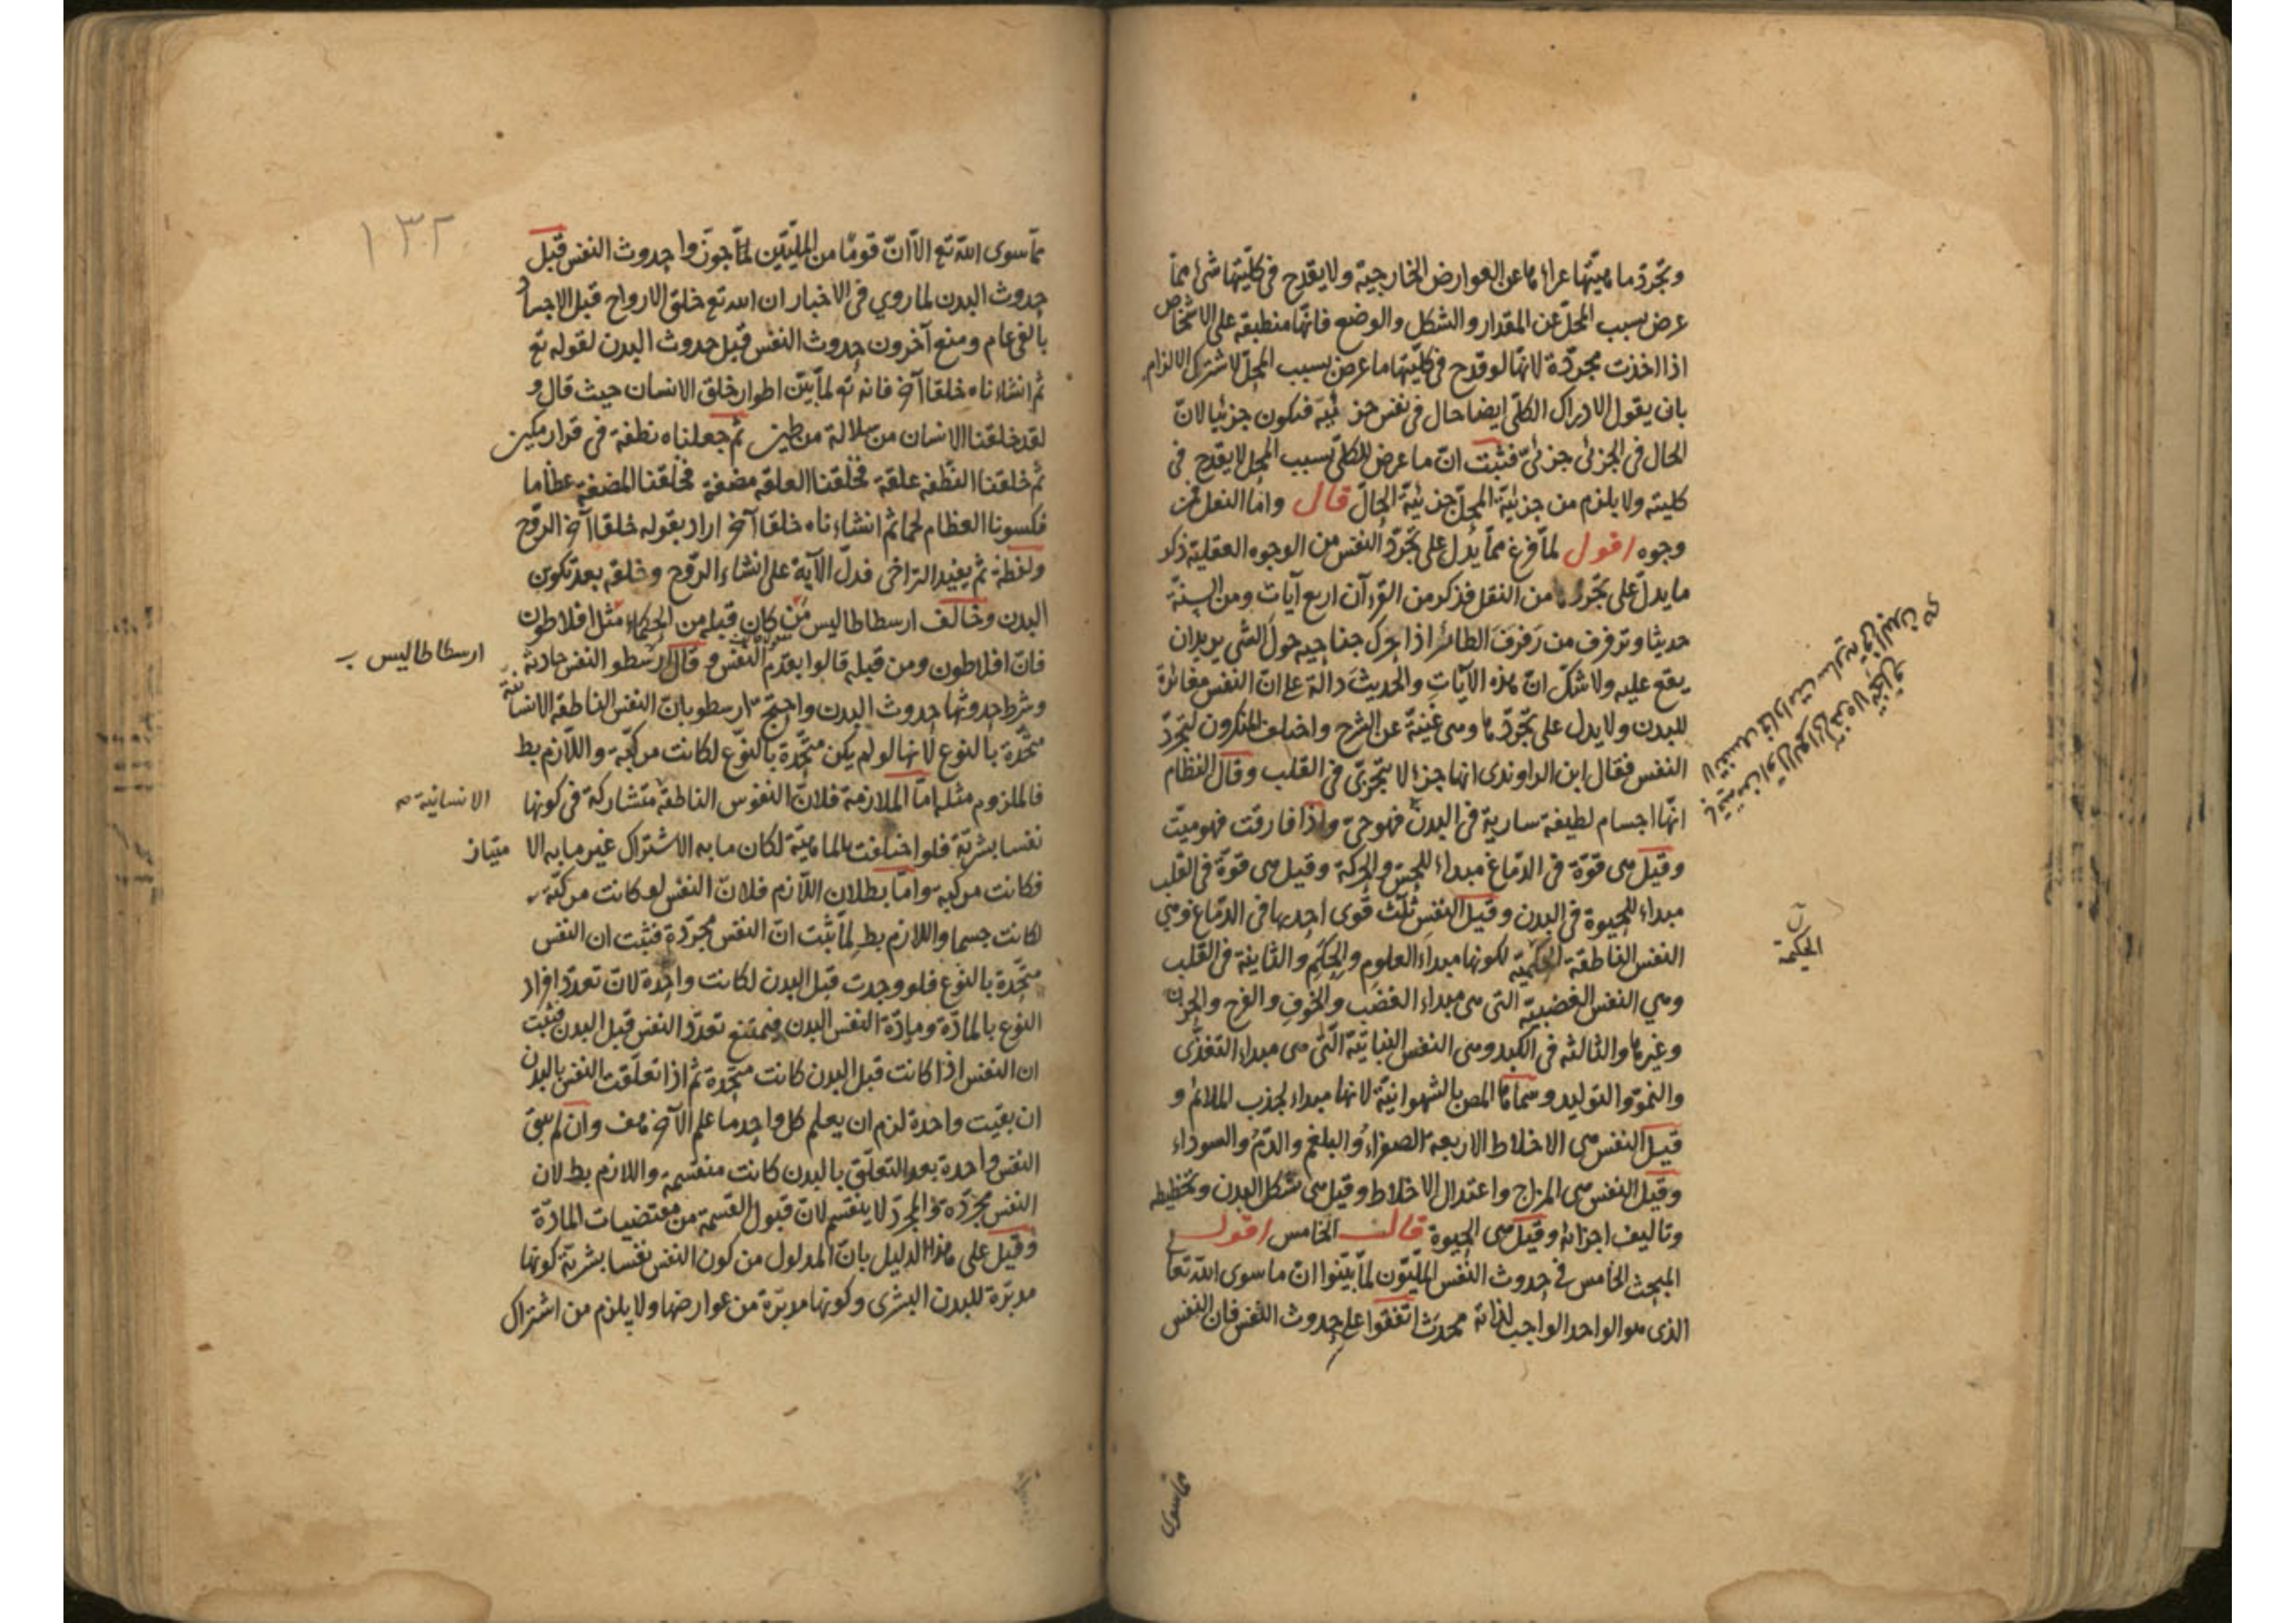 وتجرد ماهيتها عراءها عن العوارض الخارجية ولا يقدح فى كليتها شئ مما
عرض بسبب المحل عن المقدار والشكل والوضع فانها منطبقة على الاشخاص
اذا اخذت مجردة لانها لو قدح فى كليتها ما عرض بسبب المحل لاشترك الالزام
بان يقول الادراك الكلى ايضا حال فى نفس جزئية فيكون جزئيا لان
الحال فى الجزئى جزئى فثبت ان ما عرض للكلى بسبب المحل لا يقدح فى
كليته ولا يلزم من جزئية المحل جزئية الحال قال واما النقل فمن
وجوه اقول لما فرغ مما يدل على تجرد النفس من الوجوه العقلية ذكر
ما يدل على تجردها من النقل فذكر من القرءآن اربع آيات ومن السنة
حديثا وترفرف من رفرف الطائر اذا حرك جناحيه حول الشى يريد ان
يقع عليه ولا شك ان هذه الآيات والحديث دالة على ان النفس مغائرة
للبدن ولا يدل على تجردها وهى غنية عن الشرح واختلف المنكرون لتجرد
النفس فقال ابن الراوندى انها جزء لا يتجزى فى القلب وقال النظام
انها اجسام لطيفة سارية فى البدن فهو حى واذا فارقت فهو ميت
وقيل هى قوة فى الدماغ مبداء للحس والحركة وقيل هى قوة فى القلب
مبداء للحيوة فى البدن وقيل النفس ثلث قوى احديها فى الدماغ وهى
النفس الناطقة الحكمية لكونها مبداء العلوم والحكم والثانية فى القلب
وهي النفس الغضبية التى هى مبداء الغضب والخوف والفرح والحزن
وغيرها والثالثة فى الكبد وهى النفس النباتية التى هى مبداء التغذى
والنمو والتوليد وسماها المص بالشهوانية لانها مبداء لجذب الملائم و
قيل النفس هى الاخلاط الاربعة الصفراء والبلغم والدم والسوداء
وقيل النفس هى المزاج واعتدال الاخلاط وقيل هى شكل البدن وتخطيطه
وتاليف اجزائه وقيل هى الحيوة قال الخامس اقول
المبحث الخامس فى حدوث النفس المليون لما بينوا ان ما سوى الله تعا
الذى هو الواحد الواجب لذاته محدث اتفقوا على حدوث النفس فان النفس
الحكمية
مما سوى
١٣٢
مما سوى الله تع الا ان قوما من المليين لما جوزوا حدوث النفس قبل
حدوث البدن لما روي فى الاخبار ان الله تع خلق الارواح قبل الاجساد
بالفى عام ومنع آخرون حدوث النفس قبل حدوث البدن لقوله تع
ثم انشاءناه خلقا آخر فانه تع لما بين اطوار خلق الانسان حيث قال و
لقد خلقنا الانسان من سلالة من طين ثم جعلناه نطفة فى قرار مكين
ثم خلقنا النطفة علقة فخلقنا العلقة مضغة فخلقنا المضغة عظاما
فكسونا العظام لحما ثم انشاءناه خلقا آخر اراد بقوله خلقا آخر الروح
ولفظة ثم يفيد التراخى فدل الآية على انشاء الروح وخلقه بعد تكوين
البدن وخالف ارسطاطاليس من كان قبله من الحكماء مثل افلاطون
فان افلاطون ومن قبله قالوا بقدم النفس وقال ارسطو النفس حادثة
ارسطاطاليس
وشرط حدوثها حدوث البدن واحتج ارسطو بان النفس الناطقة الانسانية
متحدة بالنوع لانها لو لم يكن متحدة بالنوع لكانت مركبة واللازم بط
فالملزوم مثله اما الملازمة فلان النفوس الناطقة متشاركة فى كونها
الانسانية
نفسا بشرية فلو اختلفت بالماهية لكان ما به الاشتراك غير ما به الا متياز
فكانت مركبة واما بطلان اللازم فلان النفس لو كانت مركبة
لكانت جسما واللازم بط لما ثبت ان النفس مجردة فثبت ان النفس
متحدة بالنوع فلو وجدت قبل البدن لكانت واحدة لان تعدد افراد
النوع بالمادة ومادة النفس البدن فيمتنع تعدد النفس قبل البدن فثبت
ان النفس اذا كانت قبل البدن كانت متحدة ثم اذا تعلقت النفس بالبدن
ان بقيت واحدة لزم ان يعلم كل واحد ما علم الآخر هف وان لم يبق
النفس واحدة بعد التعلق بالبدن كانت منقسمة واللازم بط لان
النفس مجردة والمجرد لا ينقسم لان قبول القسمة من مقتضيات المادة
وقيل على هذا الدليل بان المدلول من كون النفس نفسا بشرية كونها
مدبرة للبدن البشرى وكونها مدبرة من عوارضها ولا يلزم من اشتراك